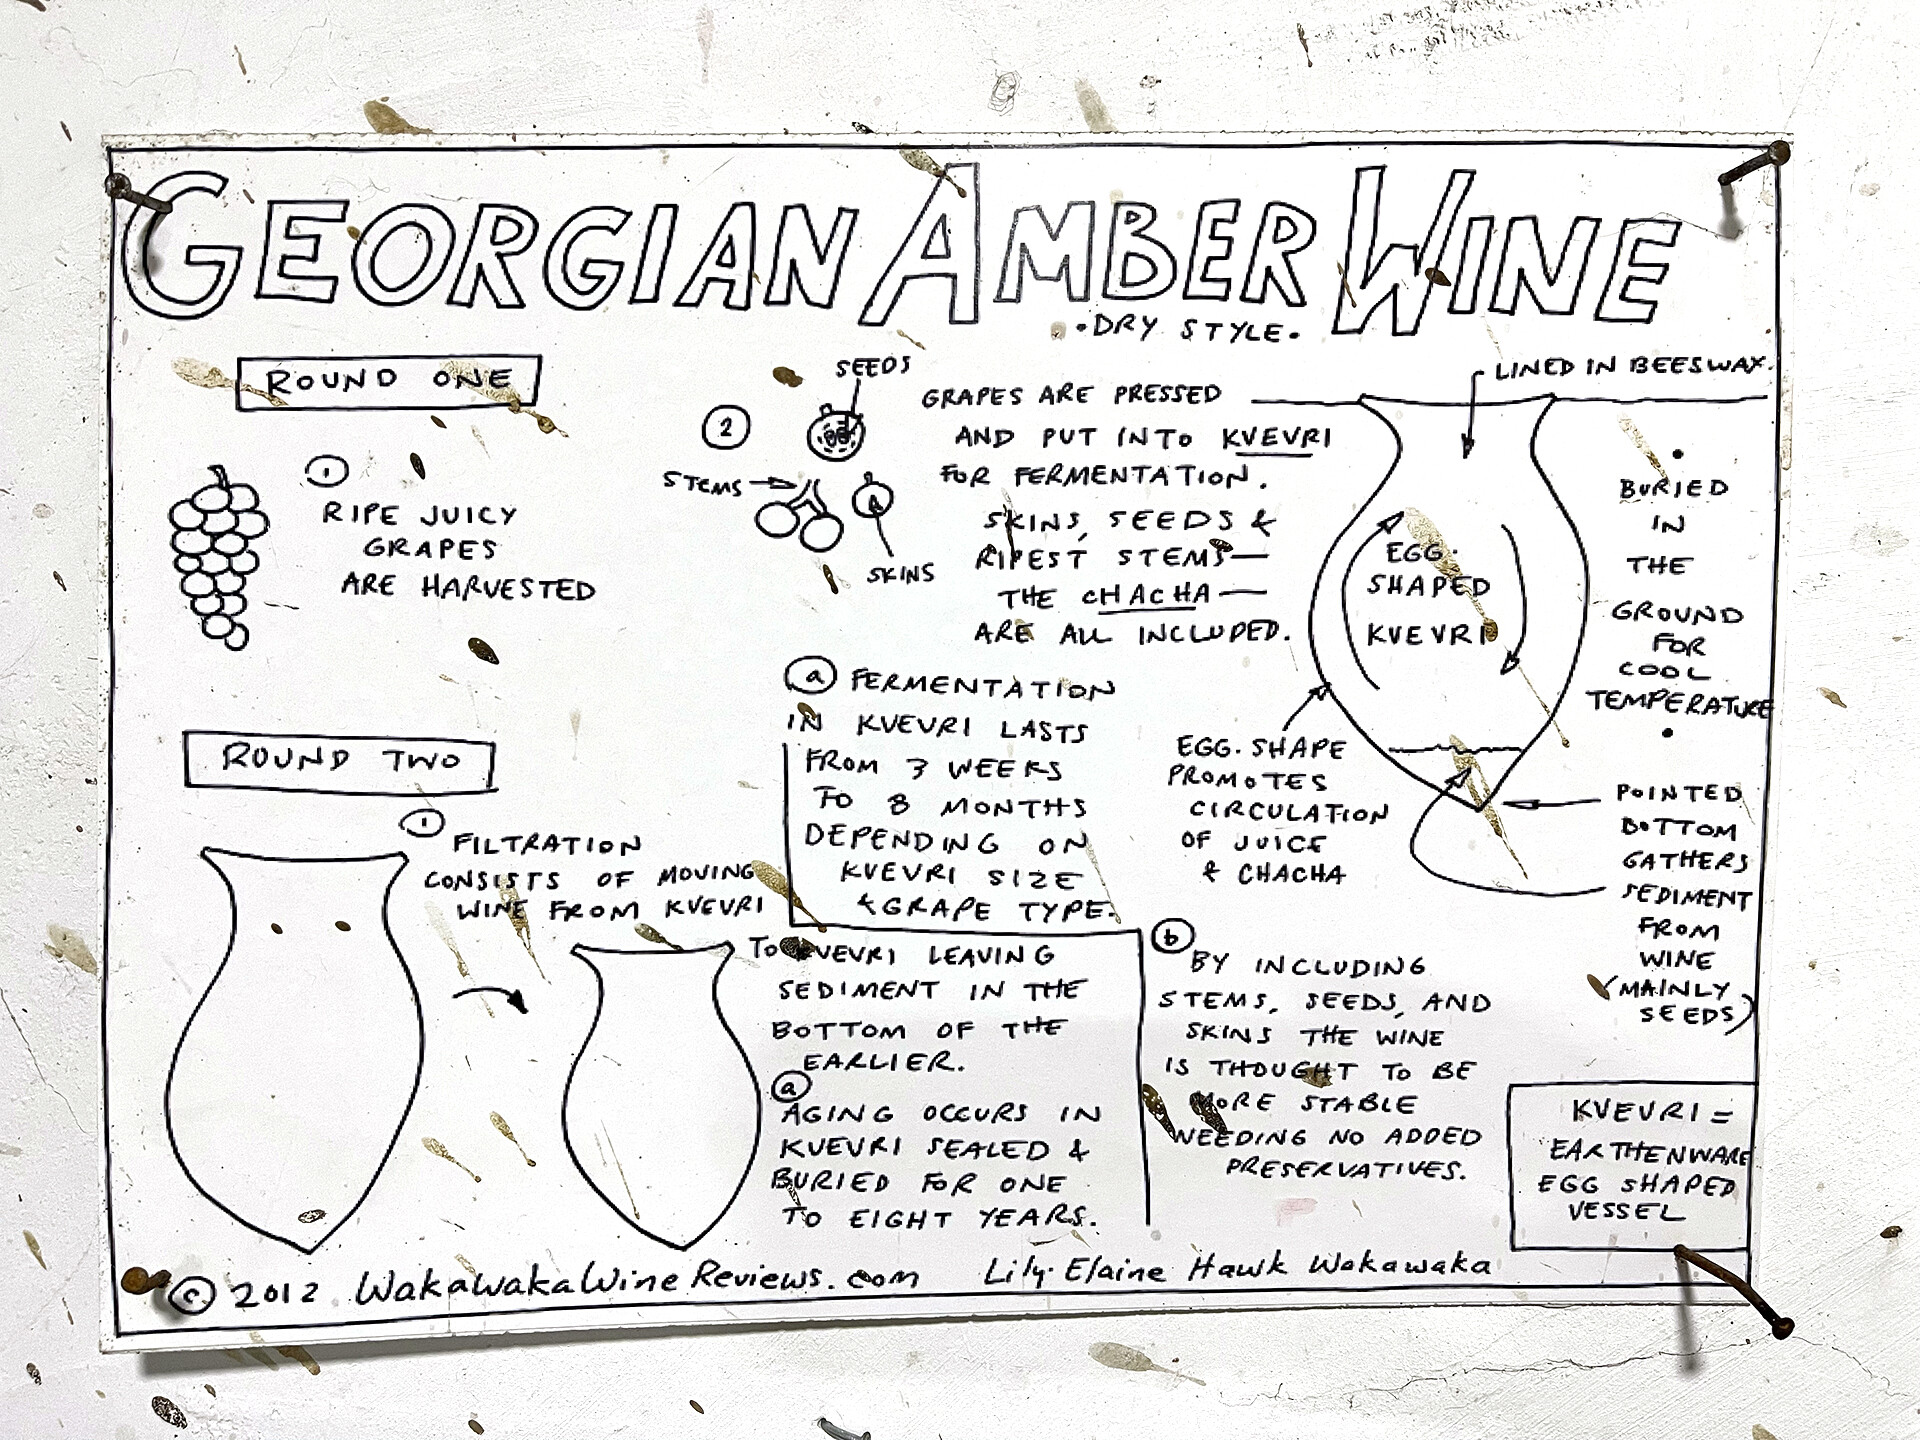 GEORGIAN AMBER WINE
•DRY STYLE•
ROUND ONE
1
RIPE JUICY
GRAPES
ARE HARVESTED
2
SEEDS
STEMS
SKINS
GRAPES ARE PRESSED
AND PUT INTO KVEVRI
FOR FERMENTATION.
SKINS, SEEDS &
RIPEST STEMS—
THE CHACHA—
ARE ALL INCLUDED.
LINED IN BEESWAX.
EGG·
SHAPED
KVEVRI
•
BURIED
IN
THE
GROUND
FOR
COOL
TEMPERATURE
•
EGG·SHAPE
PROMOTES
CIRCULATION
OF JUICE
& CHACHA
POINTED
BOTTOM
GATHERS
SEDIMENT
FROM
WINE
(MAINLY
SEEDS)
a FERMENTATION
IN KVEVRI LASTS
FROM 3 WEEKS
TO 8 MONTHS
DEPENDING ON
KVEVRI SIZE
& GRAPE TYPE.
b
BY INCLUDING
STEMS, SEEDS, AND
SKINS THE WINE
IS THOUGHT TO BE
MORE STABLE
NEEDING NO ADDED
PRESERVATIVES.
ROUND TWO
1
FILTRATION
CONSISTS OF MOVING
WINE FROM KVEVRI
TO KVEVRI LEAVING
SEDIMENT IN THE
BOTTOM OF THE
EARLIER.
a
AGING OCCURS IN
KVEVRI SEALED &
BURIED FOR ONE
TO EIGHT YEARS.
KVEVRI =
EARTHENWARE
EGG SHAPED
VESSEL
© 2012 WakawakaWineReviews.com Lily-Elaine Hawk Wakawaka